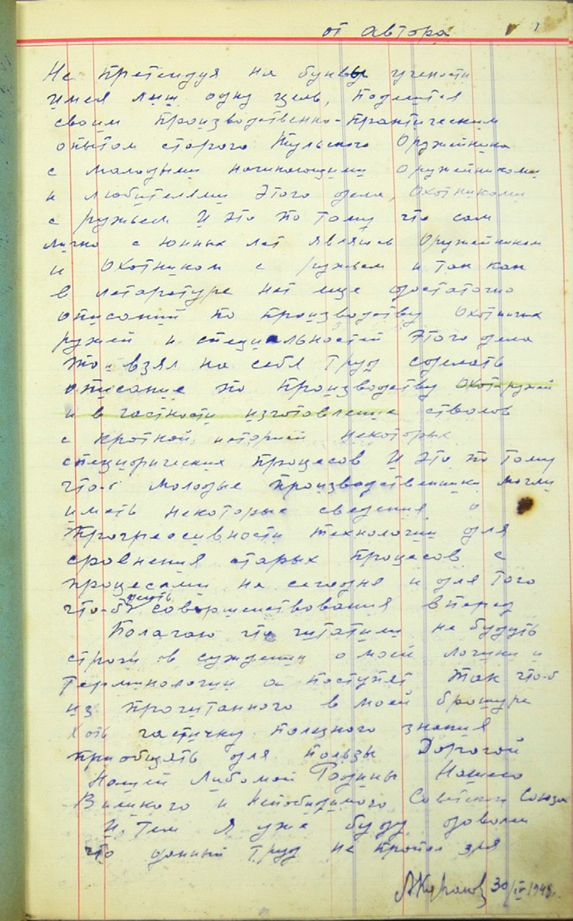 от автора
Не претендуя на буквы учености
имея лиш одну цель, поделится
своим производственно-практическим
опытом старого Тульского Оружейника
с молодыми начинающими оружейниками
и любителями этого дела, охотниками
с ружьем И это по тому что сам
лично с юнных лет являюсь Оружейником
и Охотником с ружьем и так как
в литаратуре нет еще достаточно
описаний по производству Охотничих
ружей и специальностей этого дела
то взял на себя труд сделать
описание по производству
и в частности изготовление стволов
с краткой историей некоторых
специфических процесов И это по тому
что-б молодые производственники могли
иметь некоторые сведения о
прогресивности технологии для
сравнения старых процесов с
процесами на сегодня и для того
что-б совершенствования вперед
Полагаю что читатили не будуть
строги в суждении о моей логики и
терминологии а поступят так что-б
из прочитанного в моей брошуре
хоть частичку полезного знания
приобщать для пользы Дорогой
Нашей Любимой Родины Нашего
Великого и Непобедимого Советского Союза
И тем я уже буду доволен
что данный труд не пропал зря
30/IV 1948.